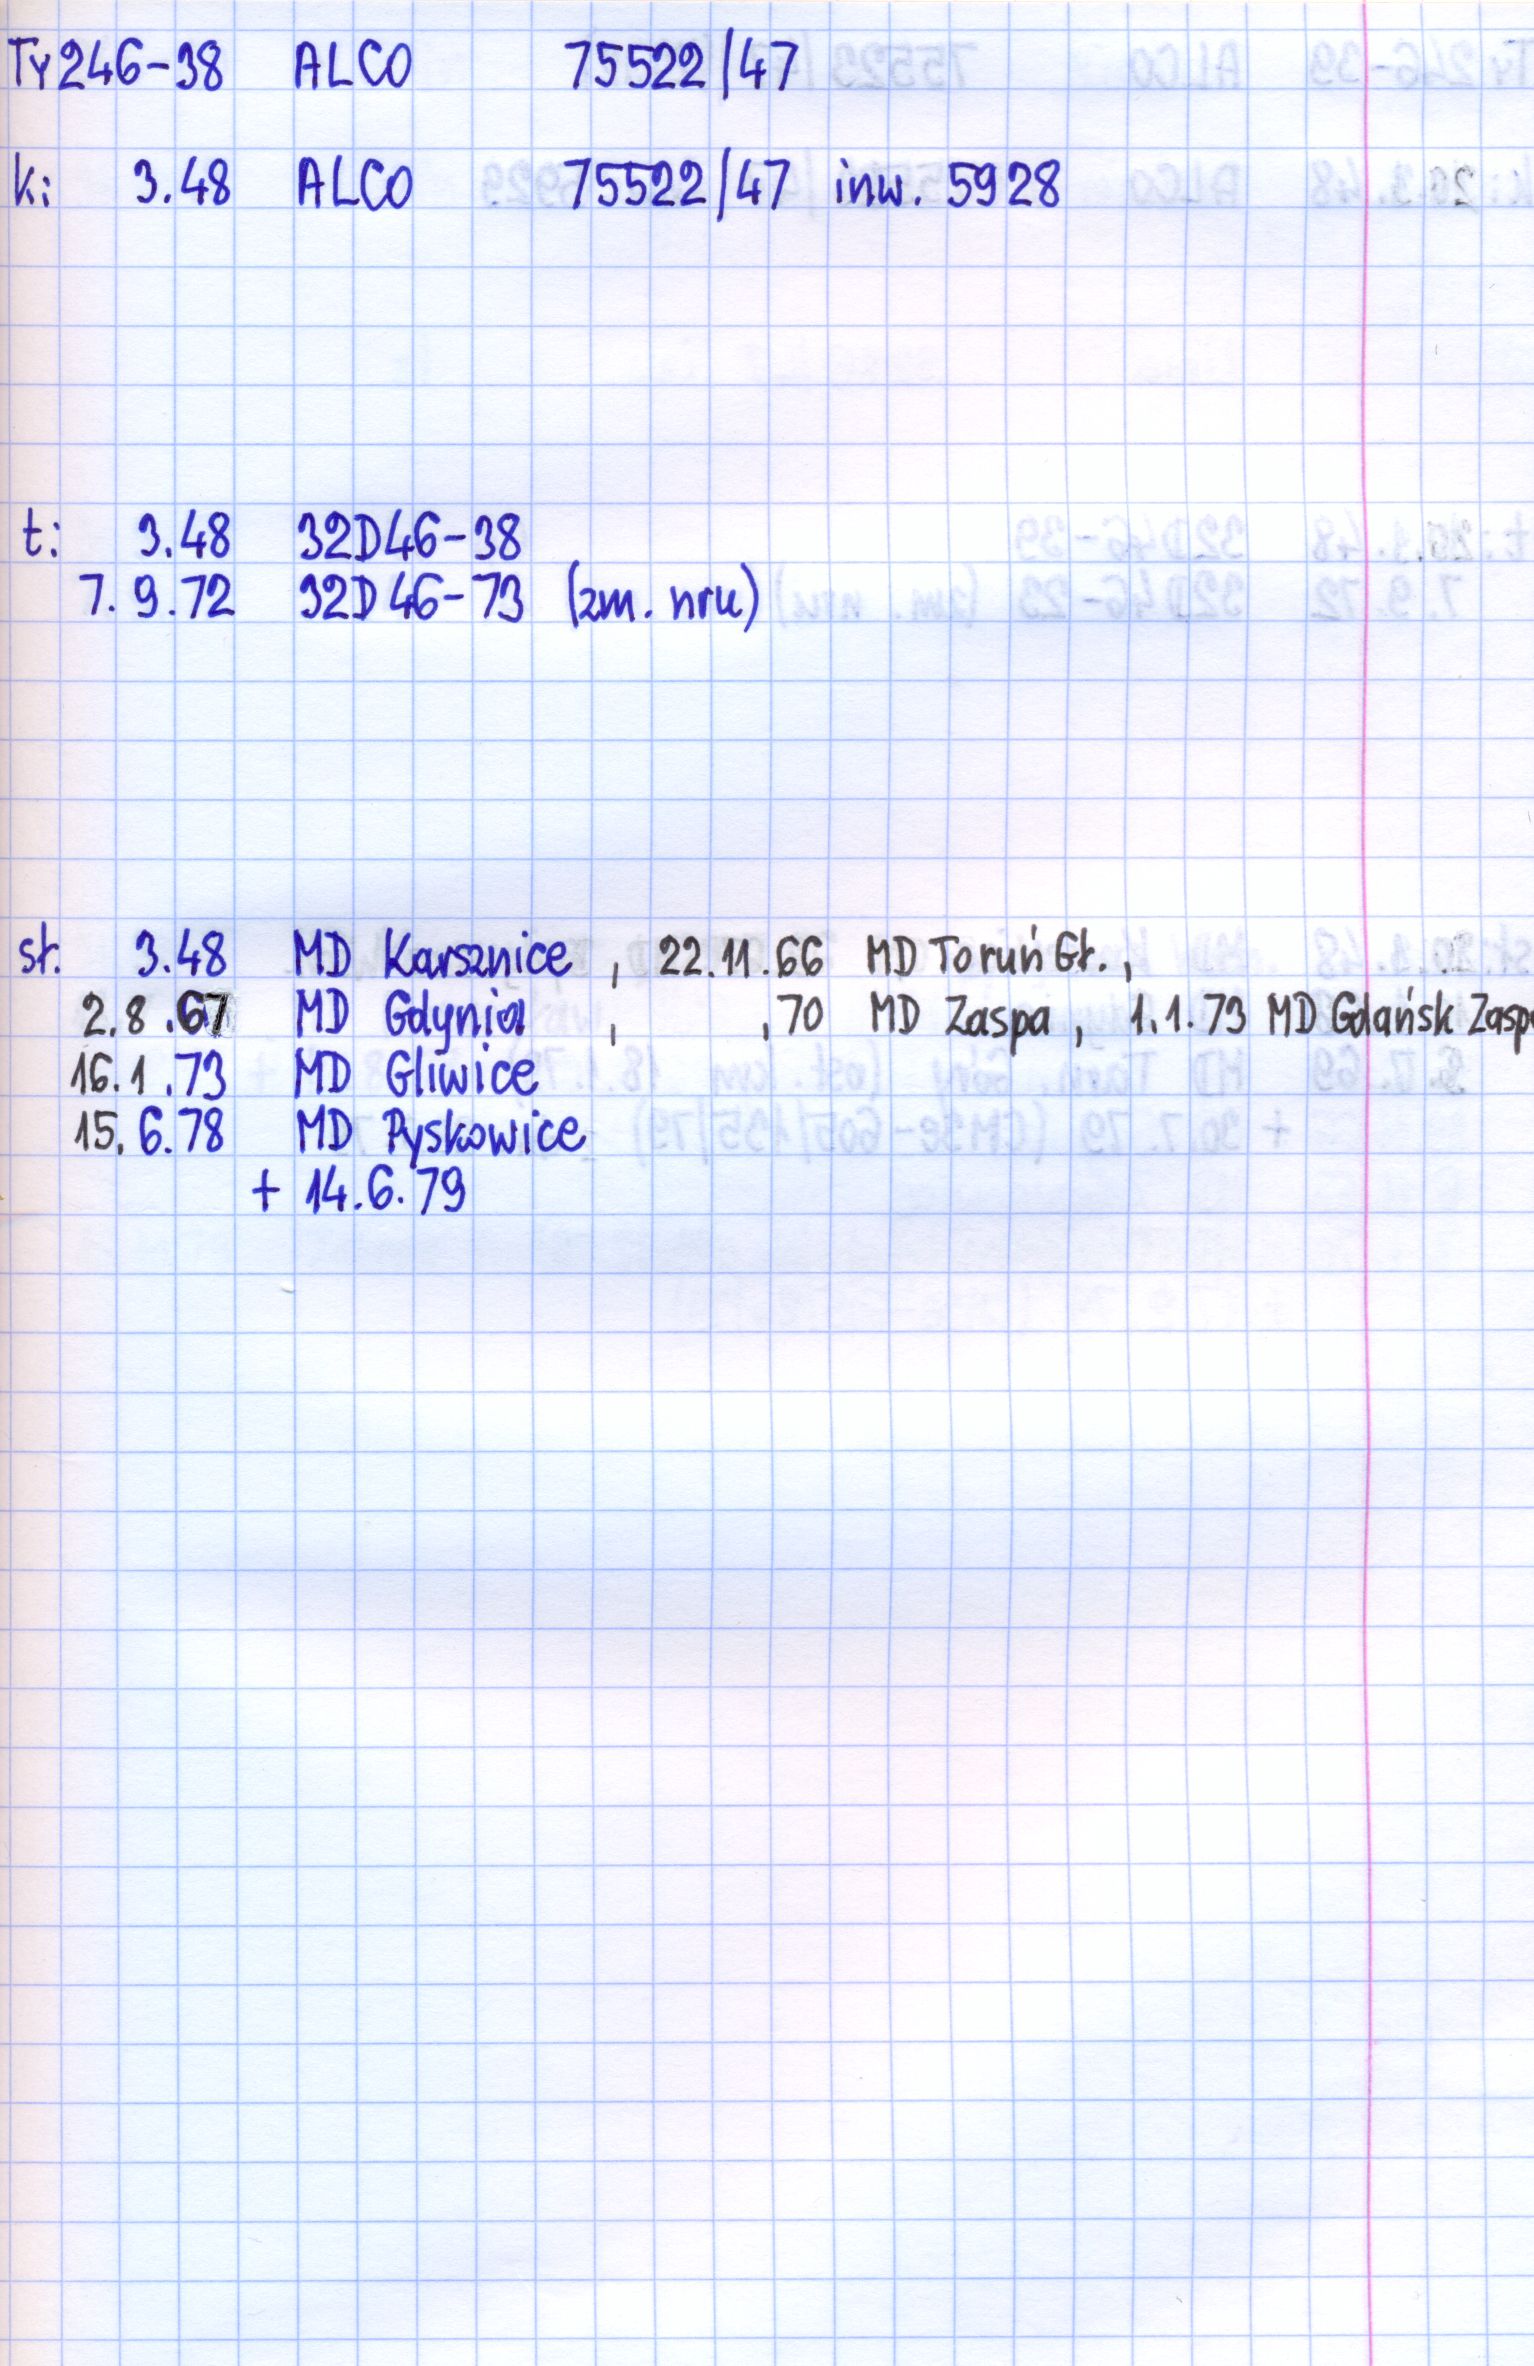 Ty246-38 ALCO 75522/47
k: 3.48 ALCO 75522/47 inw. 5928
t: 3.48 32D46-38
7.9.72 32D46-73 (zm. nru)
st. 3.48 MD Karsznice , 22.11.66 MD Toruń Gł.,
2.8.67 MD Gdynia , .70 MD Zaspa , 1.1.73 MD Gdańsk Zaspa
16.1.73 MD Gliwice
15.6.78 MD Pyskowice
+ 14.6.79